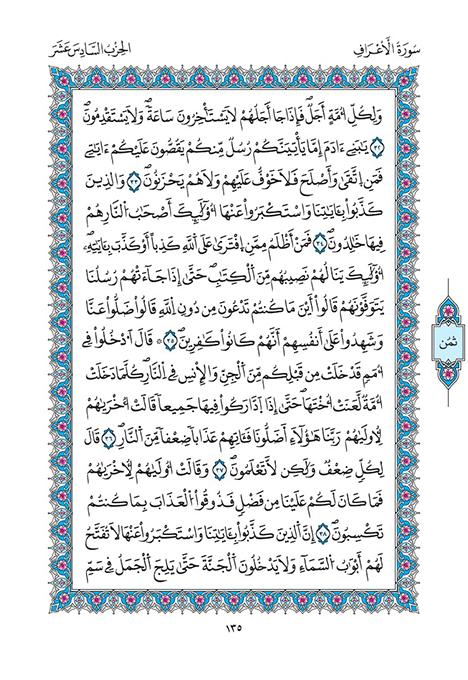 سُورَةُ الْأَعْرَافِ
الحِزْبُ السَّادِسَ عَشَرَ
وَلِكُلِّ أُمَّةٍ أَجَلٌ فَإِذَا جَا أَجَلُهُمْ لَا يَسْتَأْخِرُونَ سَاعَةً وَلَا يَسْتَقْدِمُونَ
٣٢ يَٰبَنِي ءَادَمَ إِمَّا يَأْتِيَنَّكُمْ رُسُلٌ مِّنكُمْ يَقُصُّونَ عَلَيْكُمْ ءَايَٰتِي
فَمَنِ اتَّقَىٰ وَأَصْلَحَ فَلَا خَوْفٌ عَلَيْهِمْ وَلَا هُمْ يَحْزَنُونَ ٣٣ وَالذِينَ
كَذَّبُوا بِـَٔايَٰتِنَا وَاسْتَكْبَرُوا عَنْهَا أُوْلَٰئِكَ أَصْحَٰبُ النَّارِ هُمْ
فِيهَا خَٰلِدُونَ ٣٤ فَمَنْ أَظْلَمُ مِمَّنِ اِفْتَرَىٰ عَلَى اَللَّهِ كَذِبًا أَوْ كَذَّبَ بِـَٔايَٰتِهِ
أُوْلَٰئِكَ يَنَالُهُمْ نَصِيبُهُم مِّنَ اَلْكِتَٰبِ حَتَّىٰ إِذَا جَآءَتْهُمْ رُسُلُنَا
يَتَوَفَّوْنَهُمْ قَالُوا أَيْنَ مَا كُنتُمْ تَدْعُونَ مِن دُونِ اِللَّهِ قَالُوا ضَلُّوا عَنَّا
وَشَهِدُوا عَلَىٰ أَنفُسِهِمْ أَنَّهُمْ كَانُوا كَٰفِرِينَ ٣٥ ۞ قَالَ اَدْخُلُوا فِي
أُمَمٍ قَدْ خَلَتْ مِن قَبْلِكُم مِّنَ اَلْجِنِّ وَالْإِنسِ فِي اِلنَّارِ كُلَّمَا دَخَلَتْ
أُمَّةٌ لَّعَنَتْ أُخْتَهَا حَتَّىٰ إِذَا اَدَّارَكُوا فِيهَا جَمِيعًا قَالَتْ أُخْرَىٰهُمْ
لِأُولَىٰهُمْ رَبَّنَا هَٰؤُلَآءِ أَضَلُّونَا فَـَٔاتِهِمْ عَذَابًا ضِعْفًا مِّنَ اَلنَّارِ ٣٦ قَالَ
لِكُلٍّ ضِعْفٌ وَلَٰكِن لَّا تَعْلَمُونَ ٣٧ وَقَالَتْ أُولَىٰهُمْ لِأُخْرَىٰهُمْ
فَمَا كَانَ لَكُمْ عَلَيْنَا مِن فَضْلٍ فَذُوقُوا الْعَذَابَ بِمَا كُنتُمْ
تَكْسِبُونَ ٣٨ إِنَّ اَلذِينَ كَذَّبُوا بِـَٔايَٰتِنَا وَاسْتَكْبَرُوا عَنْهَا لَا تُفَتَّحُ
لَهُمْ أَبْوَٰبُ السَّمَآءِ وَلَا يَدْخُلُونَ اَلْجَنَّةَ حَتَّىٰ يَلِجَ اَلْجَمَلُ فِي سَمِّ
ثُمُن
١٣٥